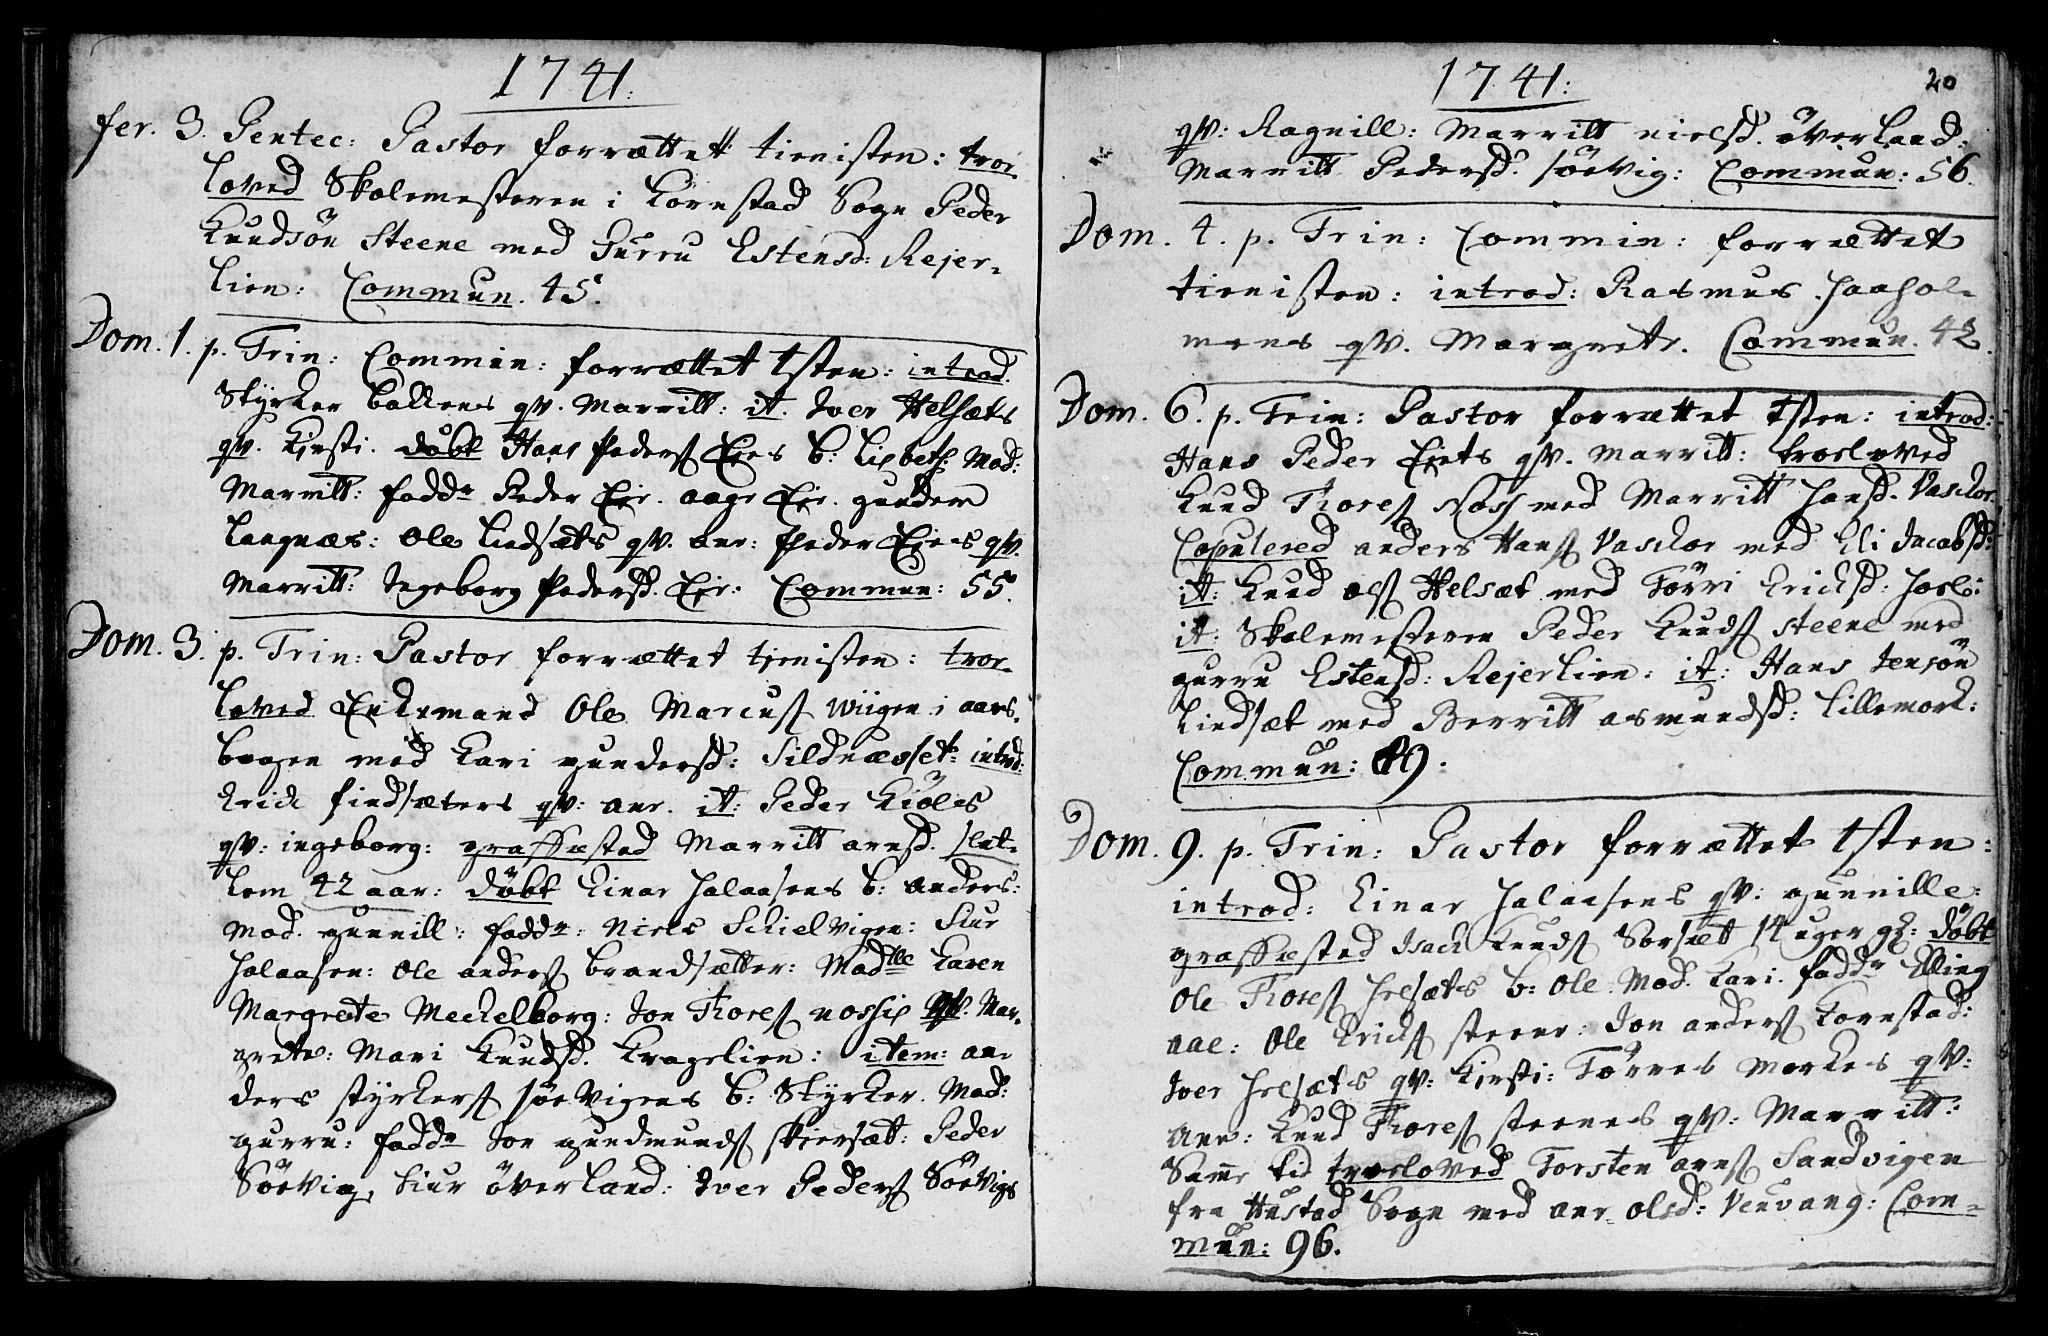 1741.
fer. 3. Pentec: Pastor forrættet tienisten: tror-
loved Skolemesteren i Kornstad Sogn Peder
Knudsön Steene med Gurru Estensd: Rejer-
lien: Commun. 45.
Dom. 1. p. Trin: Commin: forrættet tsten: introd.
Styrker bakkens qv. Marritt: it. Iver Helsæts
qv. Kirsti. döbt Hans Peders Eies b: Lisbeth: Mod:
Marritt: fadd. Peder Eie. aage Eie. gunder
Langnæs: Ole Lindsæts qv. ane: Peder Eies qv.
Marritt: Ingeborg Pedersd. Eie: Commun: 55.
Dom. 3. p. Trin: Pastor forrættet tienisten: tror-
loved Enkemand Ole Marcus Wiigen i aars-
bogen med Kari gundersd: Sildnæsset: introd:
Erich findsæters qv: ane. it: Peder Kiöls
qv: ingeborg: graffæsted Marritt arnsd. slet-
kem 42 aar: döbt Einar Halaasens b: anders:
Mod. gunnill: fadd: Niels Schielvigen: Siur
Halaasen: Ole anders brandsætter: Madlle Karen
Margrete Meckelborg: Jon Thores nossis qv. Mar-
grete: Mari Knudsd. Kragelien: item: an-
ders styrkers söevigens b: Styrker. Mod:
gurru: fadd Jon gundmunds skiersæt: Peder
Söevig, Siur överland: Iver Peders Söevigs
1741:
20
qv: Ragnill: Marritt nielsd. överland:
Marritt Pedersd. söevig: Commun: 56.
Dom. 4. p. Trin: Commin: forrættet
tienisten: introd: Rasmus Haahol-
mens qv. Margrete. Commun. 42.
Dom. 6. p. Trin: Pastor forrættet tsten: introd:
Hans Peder Eiets qv. Marritt: troeloved
Knud Thores Noss med Marritt Hansd. Vaschor.
Copulered anders Hans Vaschor med Eli Jacobsd:
it: Knud Ols Helsæt med Törri Erichsd: Hoel:
it: Skolemesteren Peder Knuds steene med
gurru Estensd: Rejerlien: it: Hans Jensön
Lindsæt med Berritt asmundsd: Lillemork:
Commun: 89.
Dom. 9. p. Trin: Pastor forrættet tsten:
introd: Einar Halaasens qv: gunnille:
graffæsted Isach Knuds Sorsæt 14 uger gl: döbt
Ole Thores Helsæts b: Ole. Mod. Kari. fadd Elling
aae: Ole Erichs steene: Jon anders Kornstad:
Iver Helsæts qv: Kirsti: Törres Morkes qv:
Ane: Knud Thores steenes qv: Marritt:
Same tid troeloved Torsten arns Sandvigen
fra Hustad Sogn med ane olsd: Venvang: Com-
mun: 96.